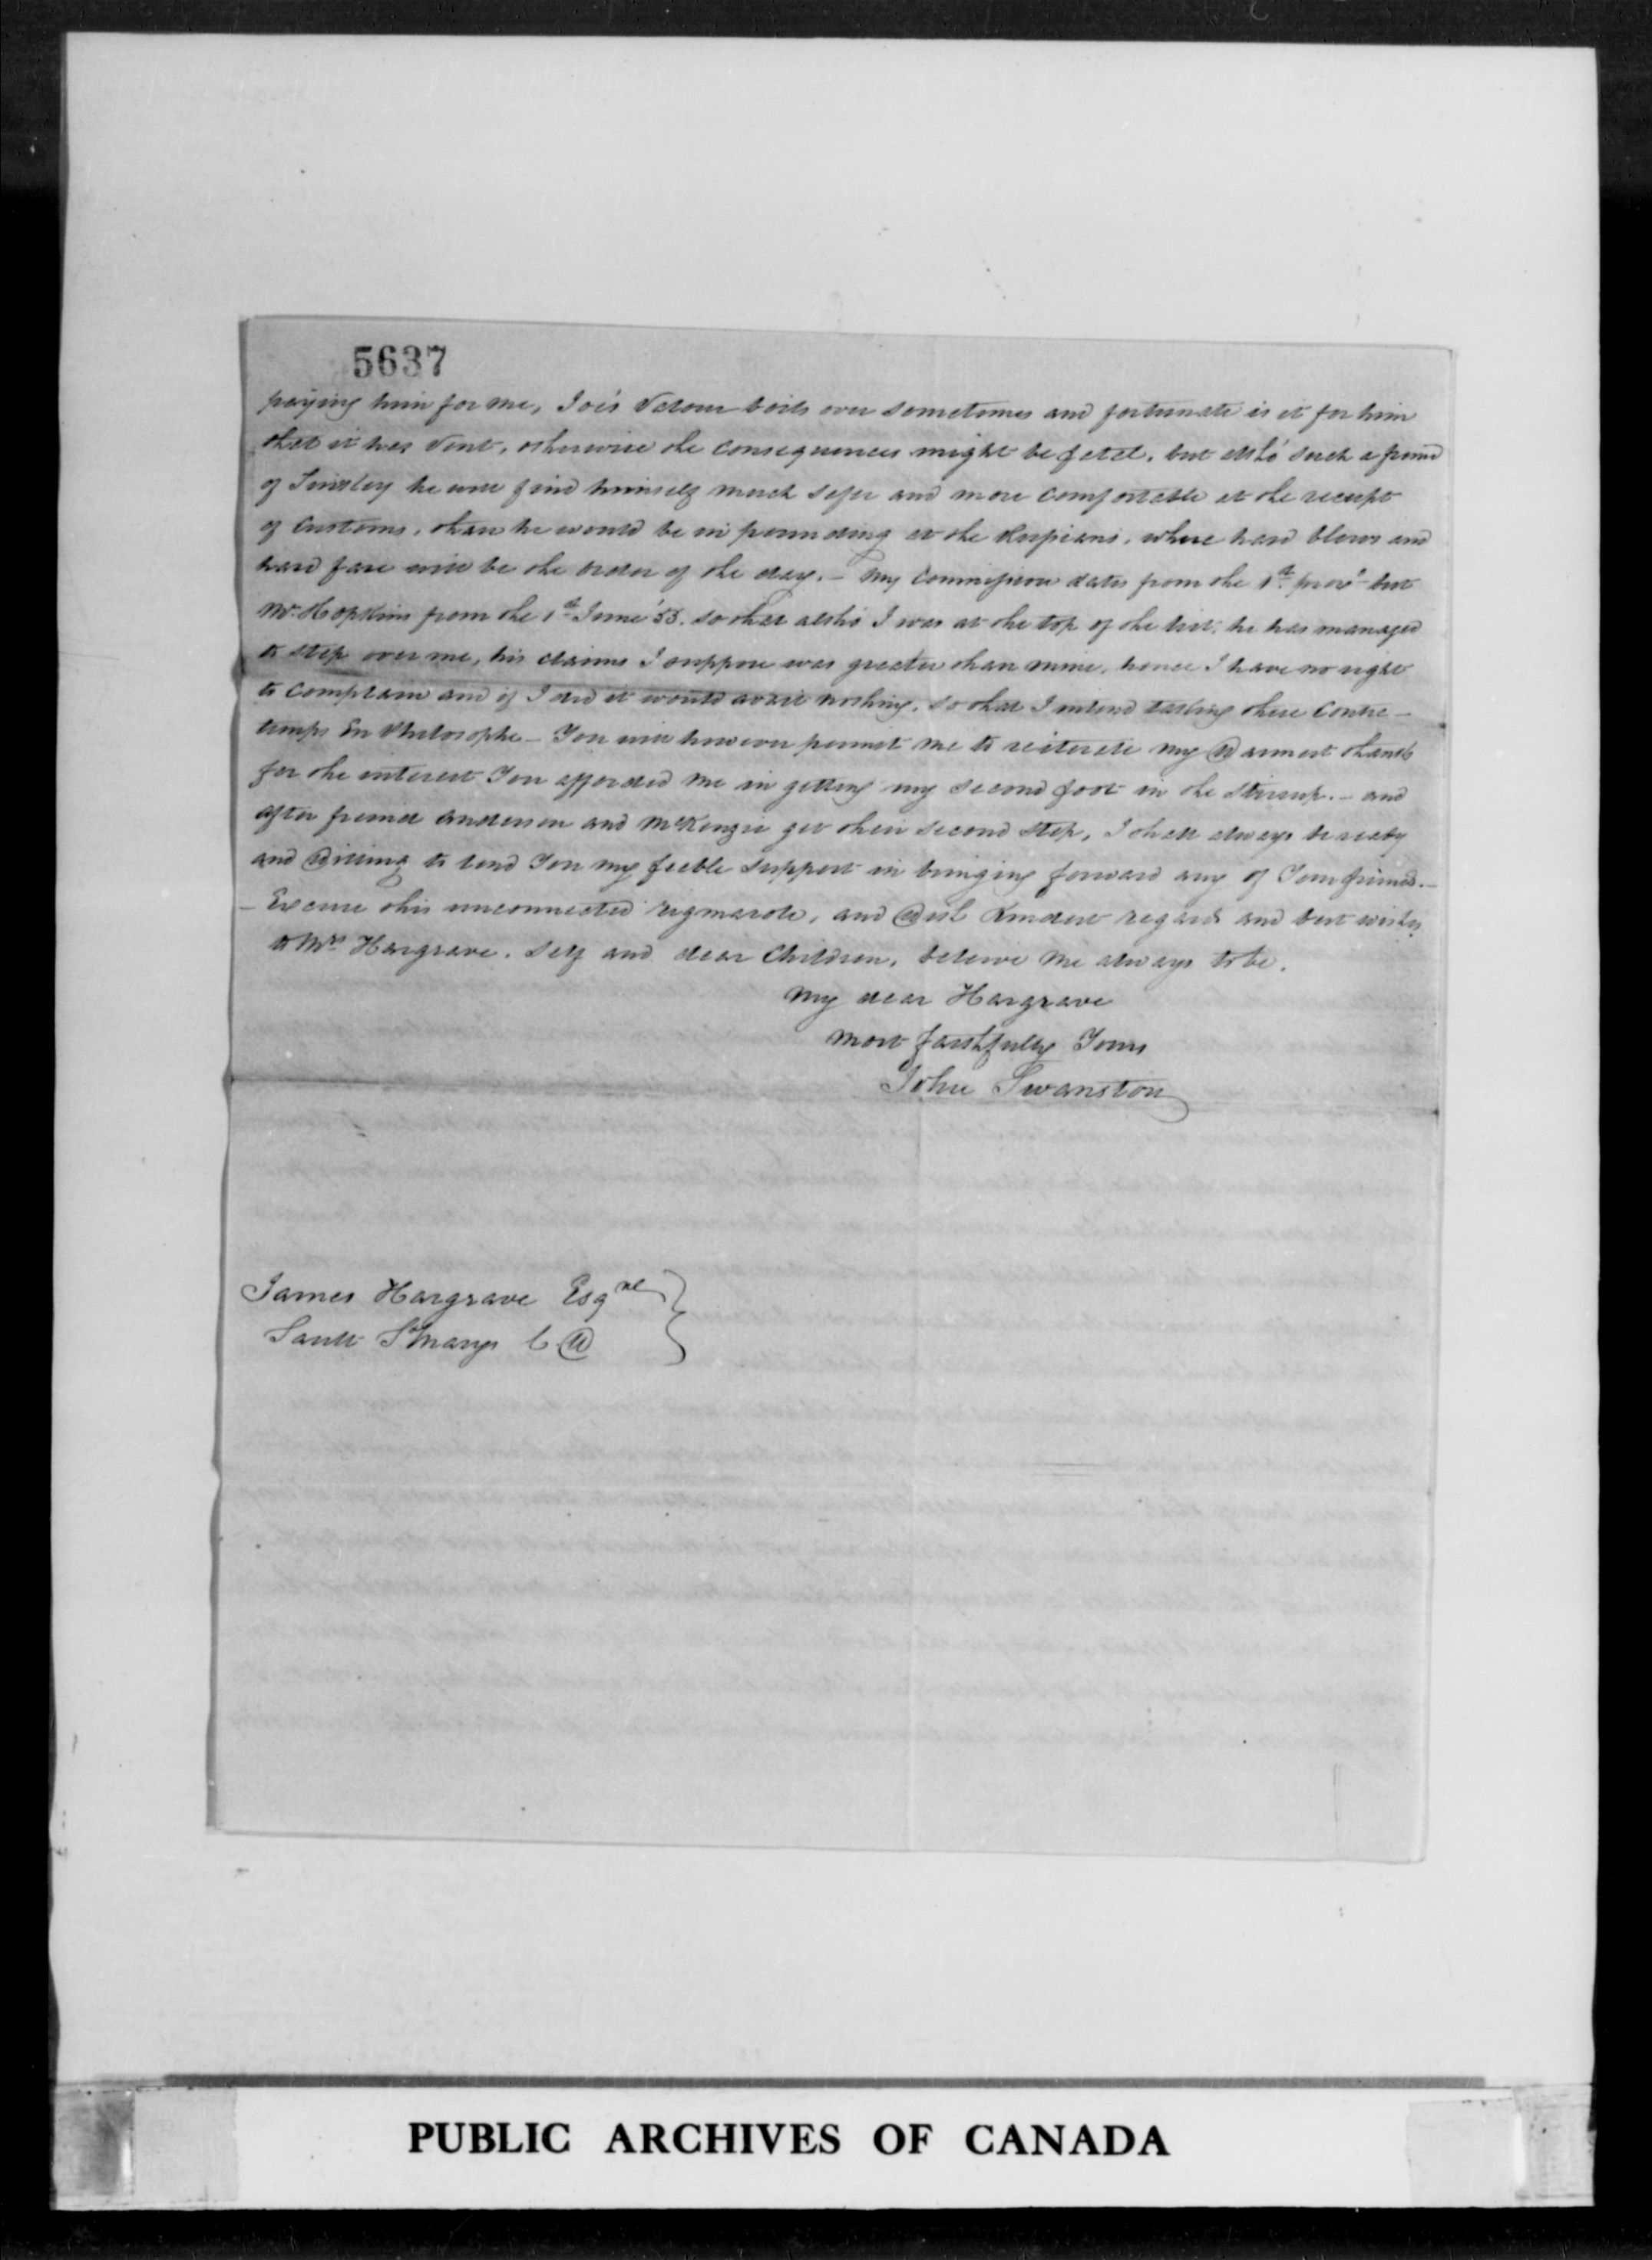 5637
paying him for me, Joe's Valour boils over sometimes and fortunate is it for him
that it has vent, otherwise the consequences might be fatal, but altho' such a friend
of Tinsley he will find himself much safer and more comfortable at the receipt
of Customs, than he would be in pounding at the Russians, where hard blows and
hard fare will be the order of the day. – My Commission dates from the 1st prox° but
Mr. Hopkins from the 1st June '55. so that altho' I was at the top of the list, he has managed
to step over me, his claims I suppose was greater than mine, hence I have no right
to Complain and if I did it would avail nothing, so that I intend taking these Contre-
temps En Philosophe – You will however permit me to reiterate my Warmest thanks
for the interest You afforded me in getting my second foot in the stirrup. – and
after friend Anderson and McKenzie get their second step, I shall always be ready
and Willing to lend You my feeble support in bringing forward any of Your friends. –
– Excuse this unconnected rigmarole, and With Kindest regards and best wishes
to Mrs Hargrave, Self and dear Children, believe me always to be,
My dear Hargrave
Most faithfully Yours
John Swanston
James Hargrave Esqre
Sault St Marys C. W
PUBLIC ARCHIVES OF CANADA